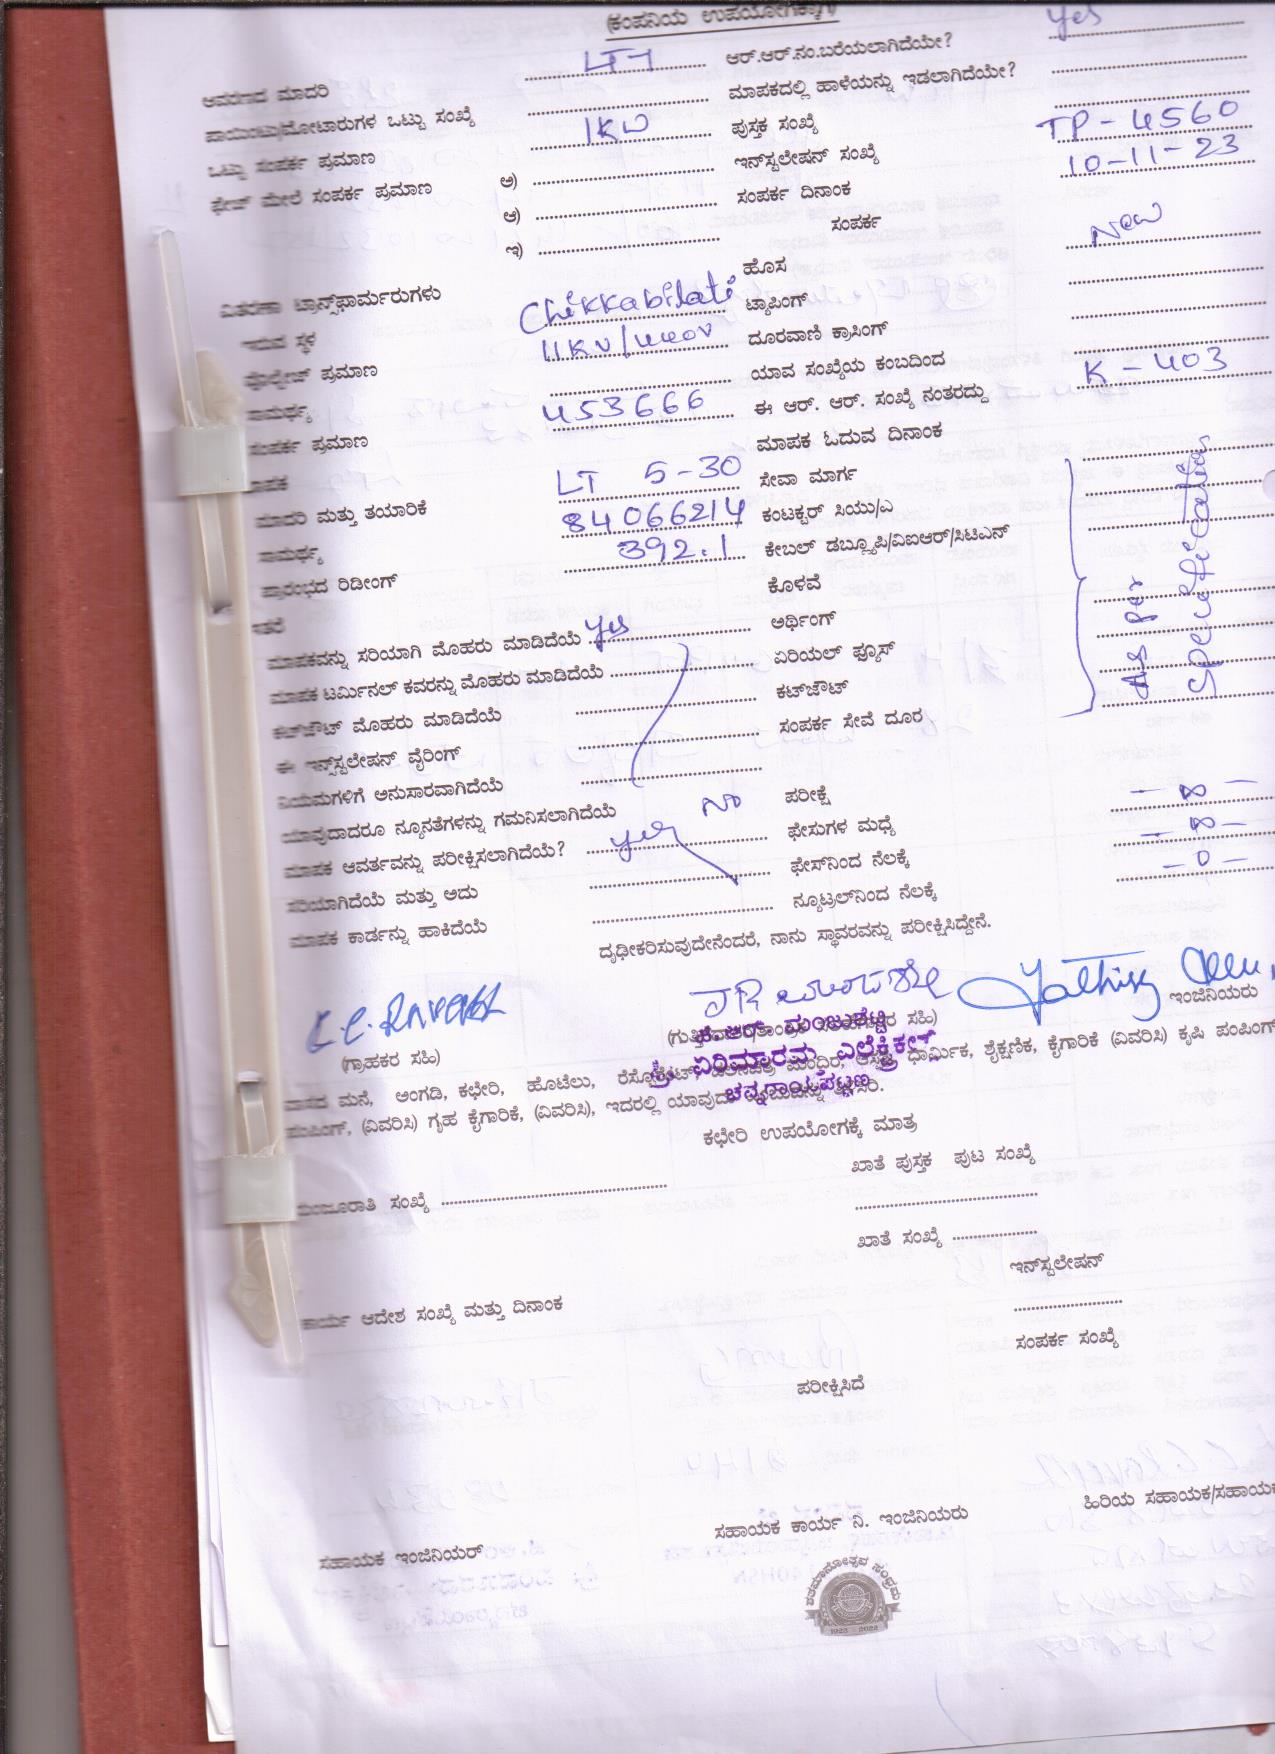 (ಕಂಪನಿಯ ಉಪಯೋಗಕ್ಕಾಗಿ)
ಆವರಣದ ಮಾದರಿ LT7 ಆರ್.ಆರ್.ನಂ.ಬರೆಯಲಾಗಿದೆಯೇ? yes
ಪಾಯಿಂಟು/ಮೋಟಾರುಗಳ ಒಟ್ಟು ಸಂಖ್ಯೆ ಮಾಪಕದಲ್ಲಿ ಹಾಳೆಯನ್ನು ಇಡಲಾಗಿದೆಯೇ?
ಒಟ್ಟು ಸಂಪರ್ಕ ಪ್ರಮಾಣ 1KW ಪುಸ್ತಕ ಸಂಖ್ಯೆ
ಫೇಜ್ ಮೇಲೆ ಸಂಪರ್ಕ ಪ್ರಮಾಣ ಅ) ಇನ್‌ಸ್ಟಲೇಷನ್ ಸಂಖ್ಯೆ TP-4560
ಆ) ಸಂಪರ್ಕ ದಿನಾಂಕ 10-11-23
ಇ) ಸಂಪರ್ಕ
ವಿತರಣಾ ಟ್ರಾನ್ಸ್‌ಫಾರ್ಮರುಗಳು ಹೊಸ New
ಇರುವ ಸ್ಥಳ Chikkabilati ಟ್ಯಾಪಿಂಗ್
ವೋಲ್ಟೇಜ್ ಪ್ರಮಾಣ 11KV/440V ದೂರವಾಣಿ ಕ್ರಾಸಿಂಗ್
ಸಾಮರ್ಥ್ಯ ಯಾವ ಸಂಖ್ಯೆಯ ಕಂಬದಿಂದ
ಸಂಪರ್ಕ ಪ್ರಮಾಣ 453666 ಈ ಆರ್. ಆರ್. ಸಂಖ್ಯೆ ನಂತರದ್ದು K-403
ಮಾಪಕ ಮಾಪಕ ಓದುವ ದಿನಾಂಕ
ಮಾದರಿ ಮತ್ತು ತಯಾರಿಕೆ LT 5-30 ಸೇವಾ ಮಾರ್ಗ
ಸಾಮರ್ಥ್ಯ 84066214 ಕಂಟಕ್ಟರ್ ಸಿಯು/ಎ
ಪ್ರಾರಂಭದ ರಿಡೀಂಗ್ 392.1 ಕೇಬಲ್ ಡಬ್ಲ್ಯೂಪಿ/ವಿಐಆರ್/ಸಿಟಿಎನ್
ಇತರೆ ಕೊಳವೆ As per Specification
ಮಾಪಕವನ್ನು ಸರಿಯಾಗಿ ಮೊಹರು ಮಾಡಿದೆಯೆ yes ಅರ್ಥಿಂಗ್
ಮಾಪಕ ಟರ್ಮಿನಲ್ ಕವರನ್ನು ಮೊಹರು ಮಾಡಿದೆಯೆ ಏರಿಯಲ್ ಫ್ಯೂಸ್
ಕಟ್‌ಔಟ್ ಮೊಹರು ಮಾಡಿದೆಯೆ ಕಟ್‌ಔಟ್
ಈ ಇನ್ಸ್‌ಸ್ಟಲೇಷನ್ ವೈರಿಂಗ್ ಸಂಪರ್ಕ ಸೇವೆ ದೂರ
ನಿಯಮಗಳಿಗೆ ಅನುಸಾರವಾಗಿದೆಯೆ
ಯಾವುದಾದರೂ ನ್ಯೂನತೆಗಳನ್ನು ಗಮನಿಸಲಾಗಿದೆಯೆ No ಪರೀಕ್ಷೆ
ಮಾಪಕ ಆವರ್ತವನ್ನು ಪರೀಕ್ಷಿಸಲಾಗಿದೆಯೆ? yes ಫೇಸುಗಳ ಮಧ್ಯೆ - ∞ -
ಸರಿಯಾಗಿದೆಯೆ ಮತ್ತು ಅದು ಫೇಸ್‌ನಿಂದ ನೆಲಕ್ಕೆ - ∞ -
ಮಾಪಕ ಕಾರ್ಡನ್ನು ಹಾಕಿದೆಯೆ ನ್ಯೂಟ್ರಲ್‌ನಿಂದ ನೆಲಕ್ಕೆ - 0 -
ದೃಢೀಕರಿಸುವುದೇನೆಂದರೆ, ನಾನು ಸ್ಥಾವರವನ್ನು ಪರೀಕ್ಷಿಸಿದ್ದೇನೆ.
(ಗ್ರಾಹಕರ ಸಹಿ) ಇಂಜಿನಿಯರು
ಕೆ.ಆರ್. ಮಂಜುಶೆಟ್ಟಿ
ಎಲೆಕ್ಟ್ರಿಕಲ್
ಚನ್ನರಾಯಪಟ್ಟಣ
ವಾಸದ ಮನೆ, ಅಂಗಡಿ, ಕಛೇರಿ, ಹೊಟೆಲು, ಮಂದಿರ, ಆಸ್ಪತ್ರೆ, ಧಾರ್ಮಿಕ, ಶೈಕ್ಷಣಿಕ, ಕೈಗಾರಿಕೆ (ವಿವರಿಸಿ) ಕೃಷಿ ಪಂಪಿಂಗ್
ಪಂಪಿಂಗ್, (ವಿವರಿಸಿ) ಗೃಹ ಕೈಗಾರಿಕೆ, (ವಿವರಿಸಿ), ಇದರಲ್ಲಿ
ಕಛೇರಿ ಉಪಯೋಗಕ್ಕೆ ಮಾತ್ರ
ಮಂಜೂರಾತಿ ಸಂಖ್ಯೆ ಖಾತೆ ಪುಸ್ತಕ ಪುಟ ಸಂಖ್ಯೆ
ಖಾತೆ ಸಂಖ್ಯೆ
ಇನ್‌ಸ್ಟಲೇಷನ್
ಕಾರ್ಯ ಆದೇಶ ಸಂಖ್ಯೆ ಮತ್ತು ದಿನಾಂಕ
ಸಂಪರ್ಕ ಸಂಖ್ಯೆ
ಪರೀಕ್ಷಿಸಿದೆ
ಸಹಾಯಕ ಇಂಜಿನಿಯರ್ ಸಹಾಯಕ ಕಾರ್ಯ ನಿ. ಇಂಜಿನಿಯರು ಹಿರಿಯ ಸಹಾಯಕ/ಸಹಾಯಕ
ಶತಮಾನೋತ್ಸವ ಸಂಭ್ರಮ
1923 - 2022